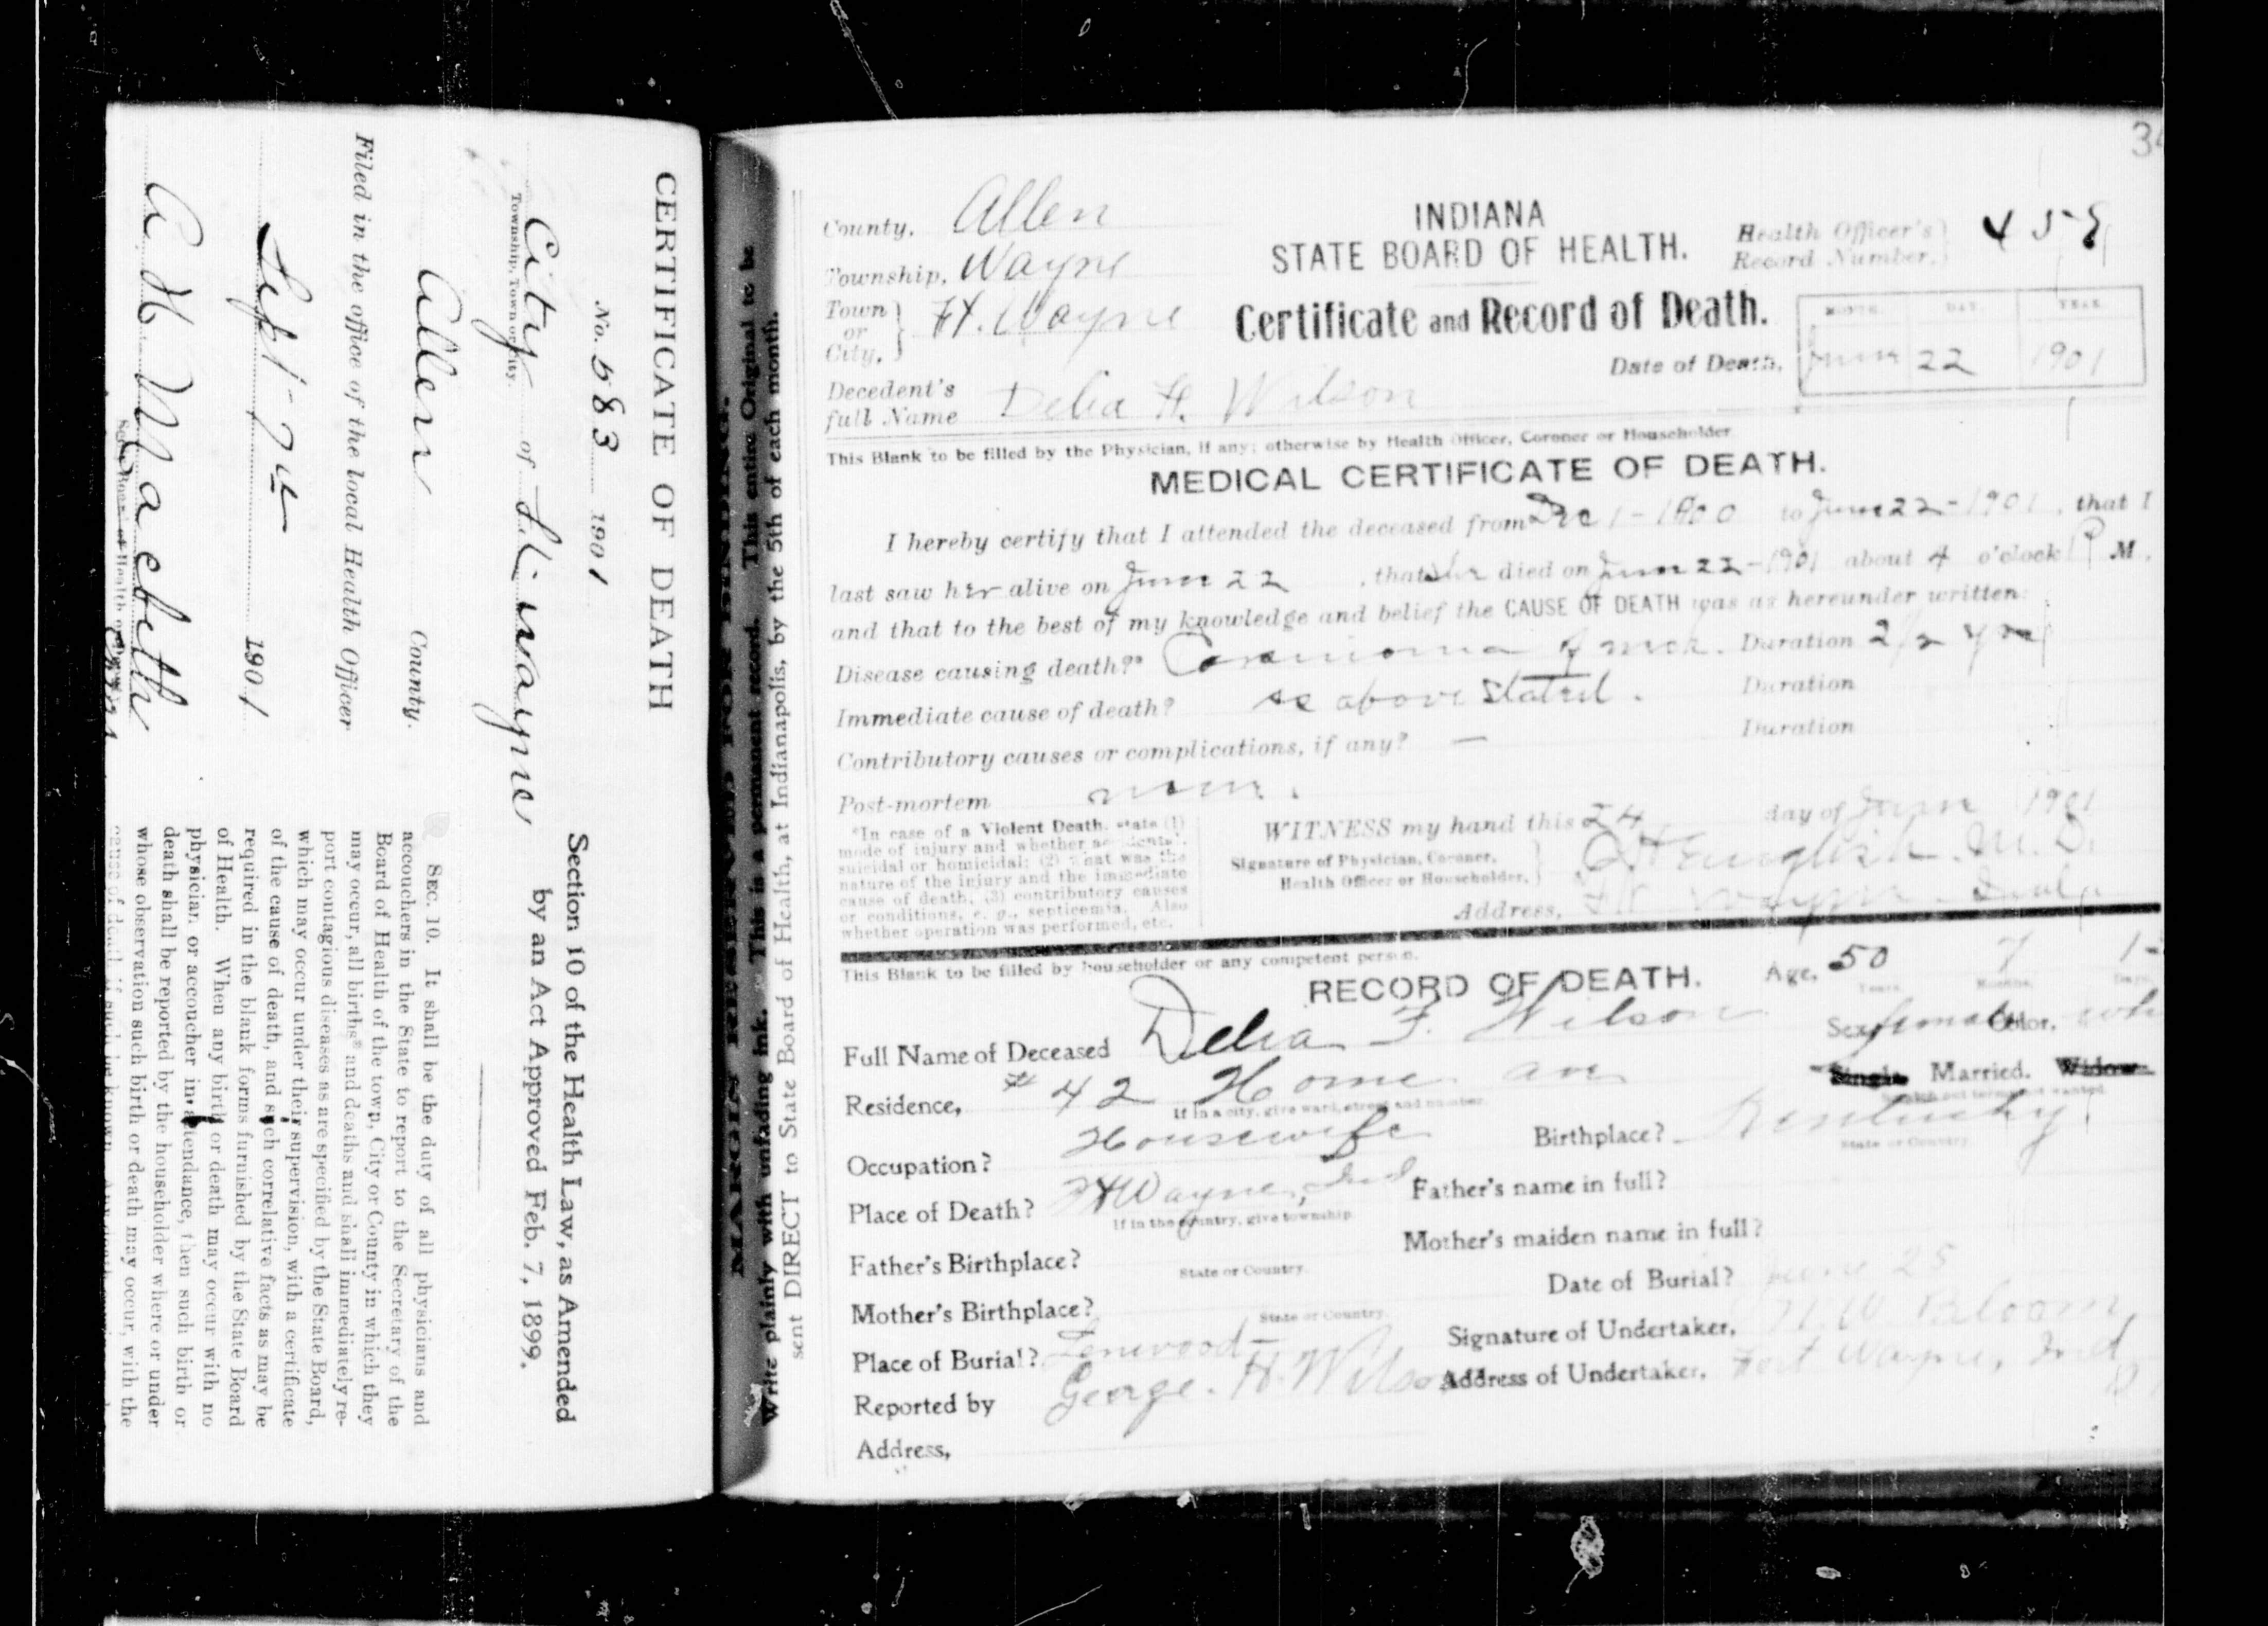 CERTIFICATE OF DEATH
No. 583 1901
City of Ft. Wayne
Township, Town or City.
Allen County.
Filed in the office of the local Health Officer
Sept 24 1901
A H Macbeth
Section 10 of the Health Law, as Amended
by an Act Approved Feb. 7, 1899.
SEC. 10. It shall be the duty of all physicians and
accouchers in the State to report to the Secretary of the
Board of Health of the town, City or County in which they
may occur, all births and deaths and shall immediately re-
port contagious diseases as are specified by the State Board,
which may occur under their supervision, with a certificate
of the cause of death, and such correlative facts as may be
required in the blank forms furnished by the State Board
of Health. When any birth or death may occur with no
physician or accoucher in attendance, then such birth or
death shall be reported by the householder where or under
whose observation such birth or death may occur, with the
cause of death if such be known.
MARGIN RESERVED FOR BINDING.
Write plainly with unfading ink. This is a permanent record. This entire Original to be
sent DIRECT to State Board of Health, at Indianapolis, by the 5th of each month.
County, Allen
Township, Wayne
Town or City, Ft. Wayne
INDIANA
STATE BOARD OF HEALTH.
Certificate and Record of Death.
Health Officer's Record Number, 458
MONTH. DAY. YEAR.
Date of Death, June 22 1901
Decedent's full Name Delia F. Wilson
This Blank to be filled by the Physician, if any; otherwise by Health Officer, Coroner or Householder
MEDICAL CERTIFICATE OF DEATH.
I hereby certify that I attended the deceased from Dec 1 - 1900 to June 22 - 1901, that I
last saw her alive on June 22, that she died on June 22 - 1901 about 4 o'clock P M.
and that to the best of my knowledge and belief the CAUSE OF DEATH was as hereunder written:
Disease causing death?* Carcinoma of neck. Duration 2 1/2 yrs
Immediate cause of death? as above stated. Duration
Contributory causes or complications, if any? — Duration
Post-mortem none.
*In case of a Violent Death, state (1)
mode of injury and whether accidental,
suicidal or homicidal; (2) what was the
nature of the injury and the immediate
cause of death, (3) contributory causes
or conditions, e. g., septicemia. Also
whether operation was performed, etc.
WITNESS my hand this 24 day of June 1901
Signature of Physician, Coroner, Health Officer or Householder, English. M. D.
Address, Ft Wayne. Inda
This Blank to be filled by householder or any competent person.
RECORD OF DEATH.
Age, 50 7
Years. Months. Days.
Full Name of Deceased Delia F. Wilson
Sex, female Color, wh
Residence, # 42 Home ave
If in a city, give ward, street and number.
Single Married. Widow
Scratch out terms not wanted.
Occupation? Housewife
Birthplace? Kentucky
State or Country.
Place of Death? Ft Wayne, Ind
If in the country, give township.
Father's name in full?
Father's Birthplace?
State or Country.
Mother's maiden name in full?
Mother's Birthplace?
State or Country.
Date of Burial? June 25
Place of Burial? Linwood
Signature of Undertaker, Bloom
Reported by George. H. Wilson
Address of Undertaker, Fort Wayne, Ind
Address,